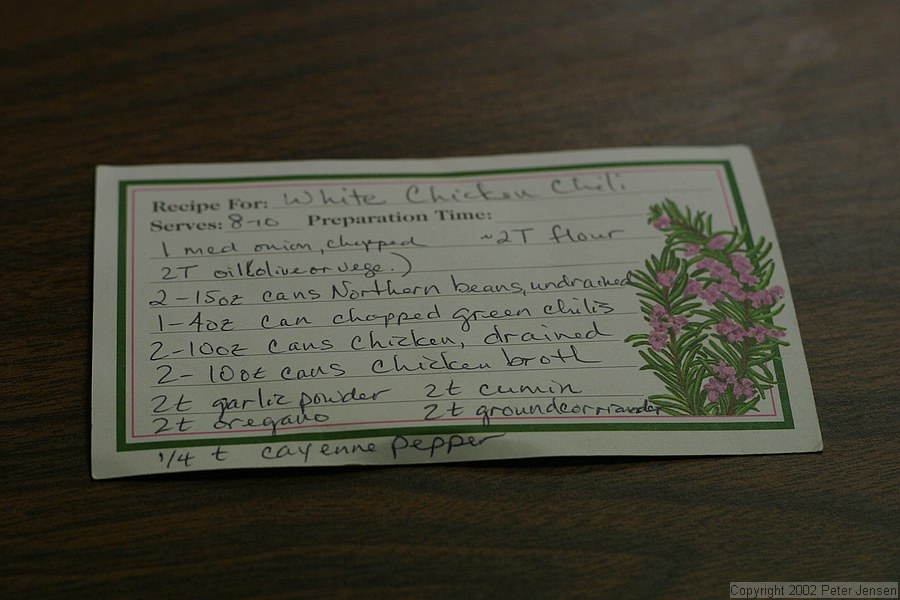 Recipe For: White Chicken Chili
Serves: 8-10 Preparation Time:
1 med onion, chopped ~2T flour
2T oil (olive or vege.)
2-15oz cans Northern beans, undrained
1-4oz can chopped green chilis
2-10oz cans chicken, drained
2-10oz cans chicken broth
2t garlic powder 2t cumin
2t oregano 2t ground corriander
1/4 t cayenne pepper
Copyright 2002 Peter Jensen